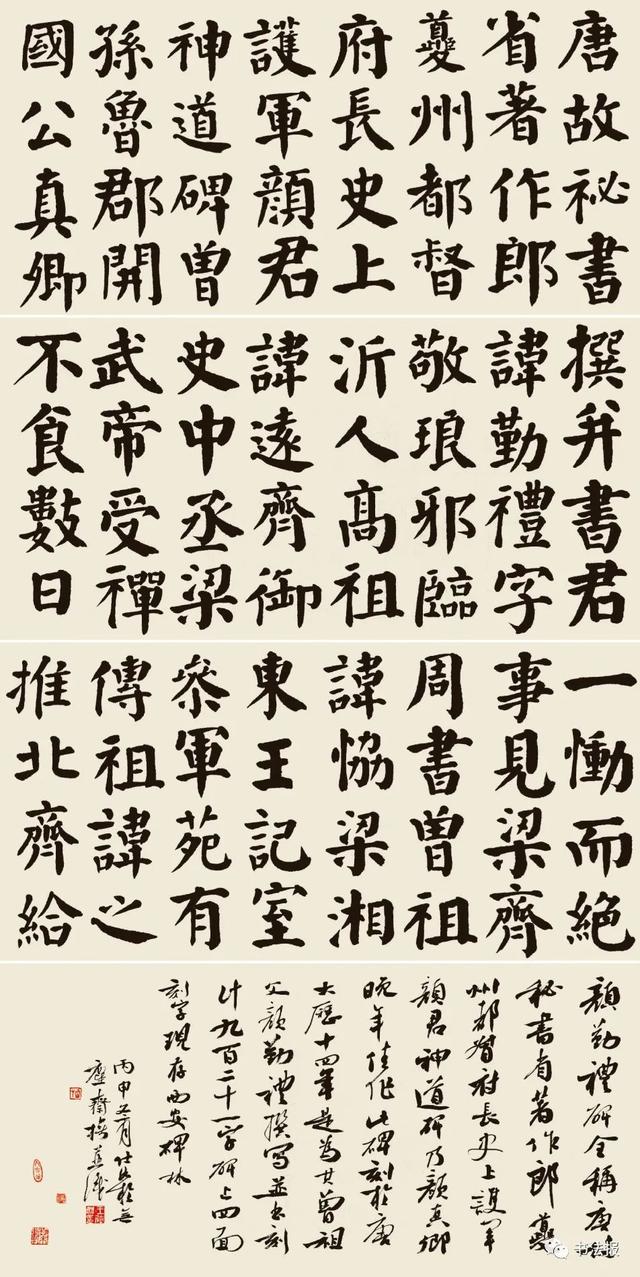 唐故祕書
省著作郎
夔州都督
府長史上
護軍顏君
神道碑曾
孫魯郡開
國公真卿
撰并書君
諱勤禮字
敬琅邪臨
沂人高祖
諱遠齊御
史中丞梁
武帝受禪
不食數日
一慟而絕
事見梁齊
周書曾祖
諱恊梁湘
東王記室
參軍苑有
傳祖諱之
推北齊給
顏勤禮碑全稱唐故
秘書省著作郎夔
州都督府長史上護軍
顏君神道碑乃顏真卿
晚年佳作此碑刻於唐
大歷十四年是為其曾祖
父顏勤禮撰寫並書刻
計九百二十一字碑上四面
刻字現存西安碑林
丙申五月
书法报